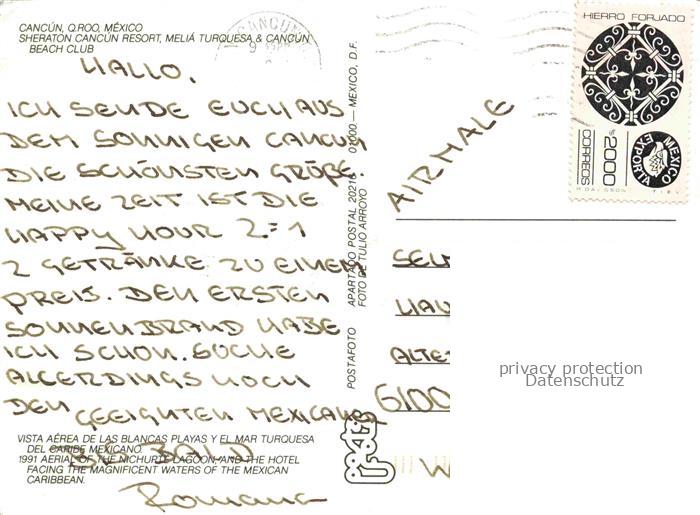 CANCÚN, Q.ROO, MÉXICO
SHERATON CANCÚN RESORT, MELIÁ TURQUESA & CANCÚN
BEACH CLUB
HALLO,
ICH SENDE EUCH AUS
DEM SONNIGEN CANCUN
DIE SCHÖNSTEN GRÜßE.
MEINE ZEIT IST DIE
HAPPY HOUR 2=1
2 GETRÄNKE ZU EINEM
PREIS. DEN ERSTEN
SONNENBRAND HABE
ICH SCHON. SUCHE
ALLERDINGS NOCH
DEN GEEIGNTEN MEXICANER
BIS BALD
Romana
VISTA AÉREA DE LAS BLANCAS PLAYAS Y EL MAR TURQUESA
DEL CARIBE MEXICANO.
1991 AERIAL OF THE NICHURTE LAGOON, AND THE HOTEL
FACING THE MAGNIFICENT WATERS OF THE MEXICAN
CARIBBEAN.
POSTAFOTO APARTADO POSTAL 20216 01000.— MEXICO, D.F.
FOTO DE TULIO ARROYO
CANCUN
9
HIERRO FORJADO
MEXICO EXPORTA
$2000
CORREOS
AIRMALE
ALTE
6100
W
privacy protection
Datenschutz